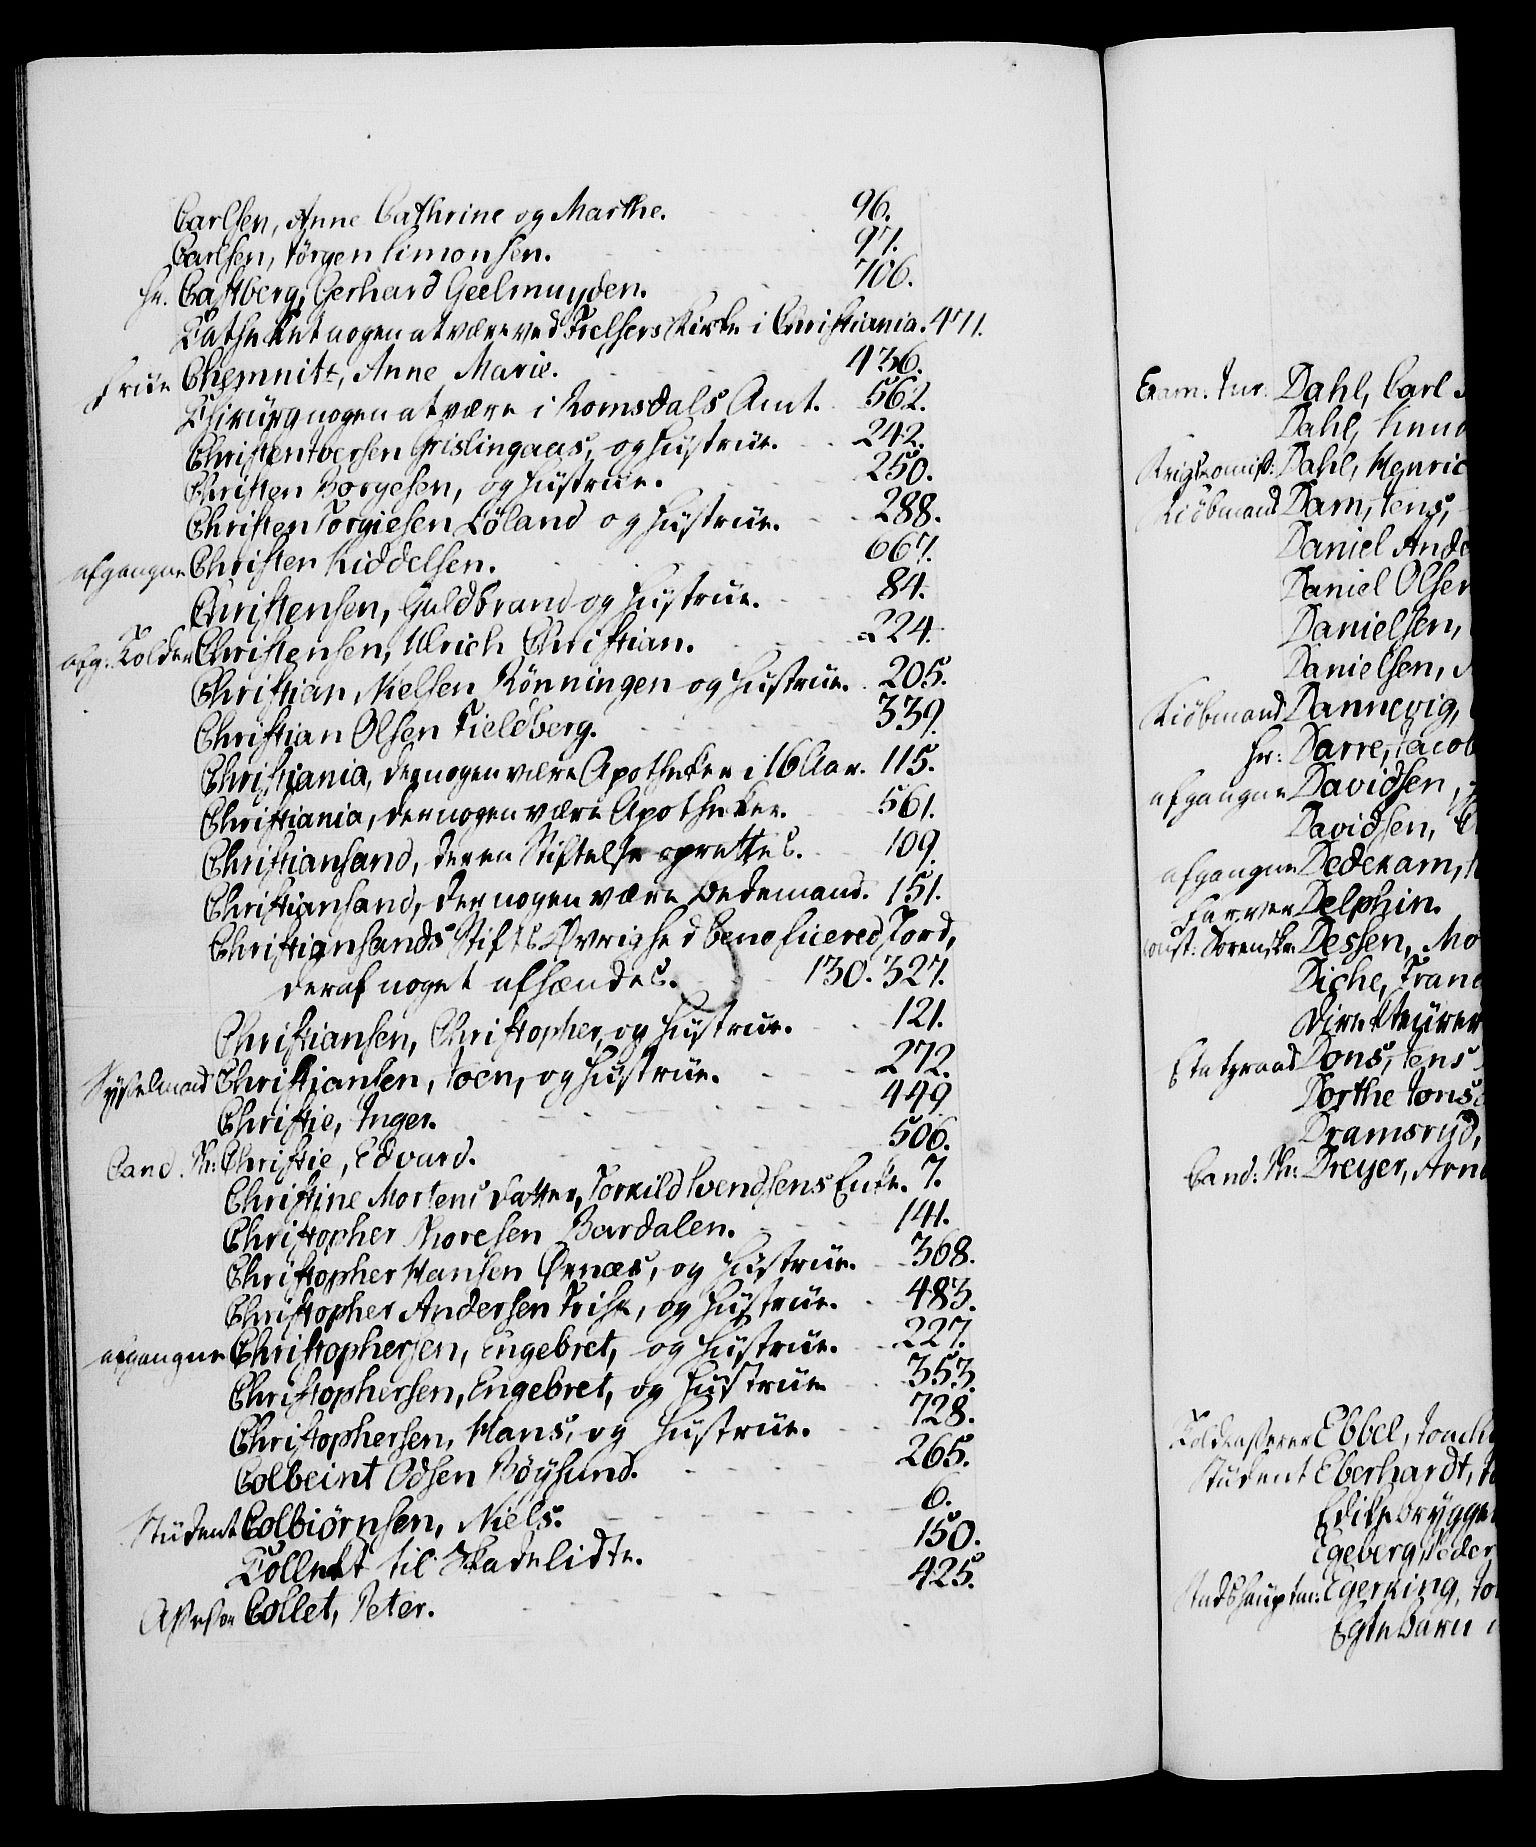 Carlsen, Anne Cathrine og Marthe. 96.
Carlsen, Jørgen Simonsen. 97.
Hr. Castberg, Gerhard Geelmuyden. 706.
Catheket nogen at være ved Frelsers Kirke i Christiania. 471.
Frue Chemnitz, Anne Marie. 436.
Chirurg nogen at være i Romsdals Amt. 562.
Christen Iversen Grislingaas, og Hustrue. 242.
Christen Borgesen, og Hustrue. 250.
Christen Torgiesen Løland og Hustrue. 288.
afgangne Christen Kiddelsen. 667.
Christensen, Guldbrand og Hustrue. 84.
afg. Tolder Christensen, Ulrich Christian. 224.
Christian Nielsen Rønningen og Hustrue. 205.
Christian Olsen Fieldberg. 339.
Christiania, der nogen være Apotheker i 16 Aar. 115.
Christiania, der nogen være Apotheker. 561.
Christiansand, der en Stiftelse oprettes. 109.
Christiansand, der nogen være Bedemand. 151.
Christiansands Stifts Øvrighed beneficered Jord,
deraf noget afhændes. 130. 327.
Christiansen, Christopher, og Hustrue. 121.
Sysselmand Christiansen, Joen, og Hustrue. 272.
Christie, Inger. 449.
Cand. Ph: Christie, Edvard. 506.
Christine Mortens Datter, Torkild Svendsens Enke. 7.
Christopher Thoresen Bardalen. 141.
Christopher Hansen Ørnæs, og Hustrue. 368.
Christopher Andersen Friis, og Hustrue. 483.
afgangne Christophersen, Engebret, og Hustrue. 227.
Christophersen, Engebret, og Hustrue 353.
Christophersen, Hans, og Hustrue. 728.
Colbeint Odsen Bøysund. 265.
Student Colbiørnsen, Niels. 6.
Collekt til Skadelidte. 150.
Assessor Collet, Peter. 425.
Exam. Jur: Dahl, Carl
Dahl, Knud
Krigskomiss: Dahl, Henric
Kiøbmand Dam, Jens,
Daniel Ande
Daniel Olsen
Danielsen,
Danielsen,
Kiøbmand Dannevig,
Hr: Darre, Jacob
afgangne Davidsen,
Davidsen,
afgangne Dedekam,
Farver Delphin.
Const: Sorenskr: Dessen, Mo
Diche, Fran
Directeurer
Etatsraad Dons, Jens
Dorthe Jons
Dramsryd,
Cand: Ph: Dreyer, Arn
Toldkasserer Ebbel, Joach
Student Eberhardt,
Edikebrygge
Egeberg, Peder
Stadshauptm: Egerking, Jo
Ægte Børn